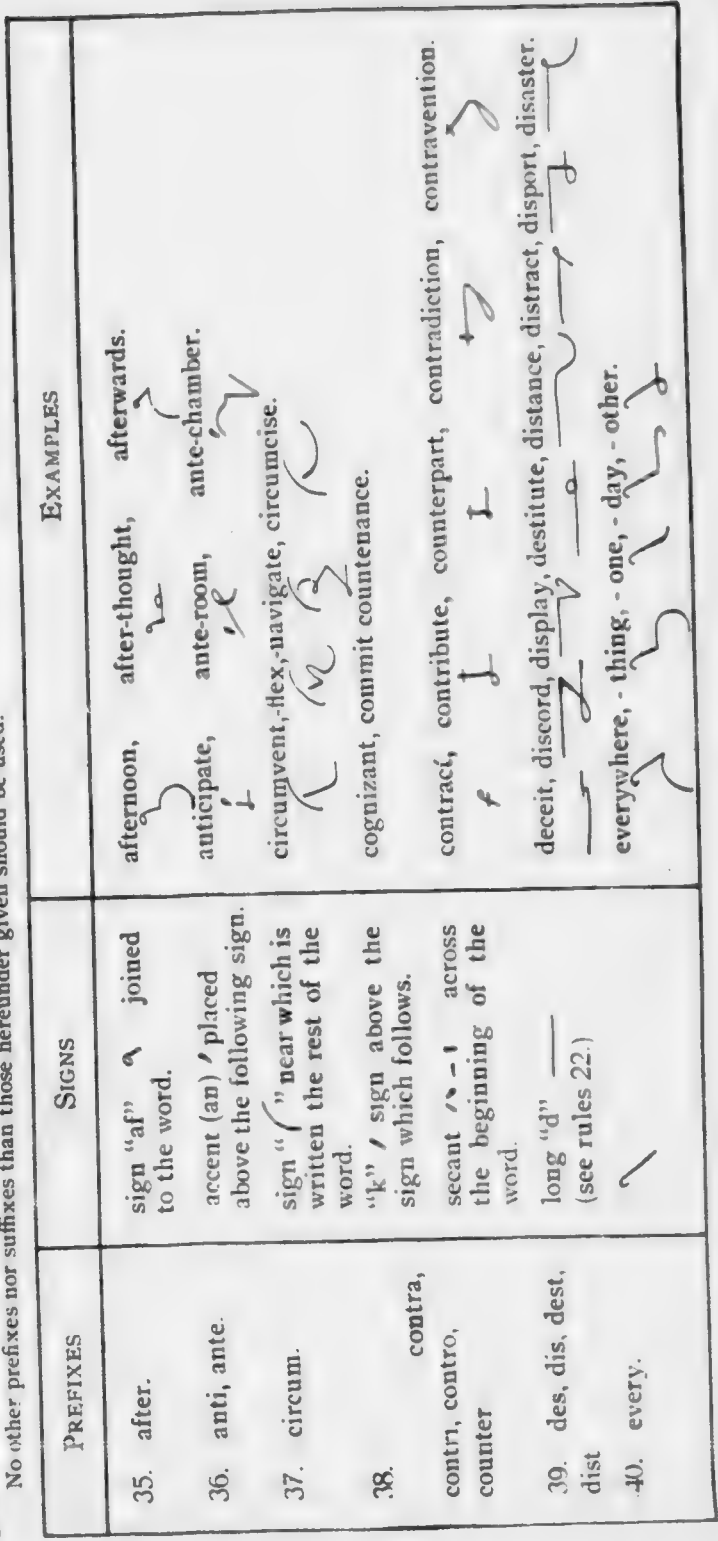 No other prefixes nor suffixes than those hereunder given should be used.
PREFIXES
SIGNS
EXAMPLES
35. after.
sign "af" joined
to the word.
afternoon, after-thought, afterwards.
36. anti, ante.
accent (an) placed
above the following sign.
anticipate, ante-room, ante-chamber.
37. circum.
sign " " near which is
written the rest of the
word.
circumvent,-flex,-navigate, circumcise.
38.
"k" sign above the
sign which follows.
cognizant, commit countenance.
contra,
contri, contro,
counter
secant across
the beginning of the
word.
contract, contribute, counterpart, contradiction, contravention.
39. des, dis, dest,
dist
long "d"
(see rules 22.)
deceit, discord, display, destitute, distance, distract, disport, disaster.
40. every.
everywhere, - thing, - one, - day, - other.